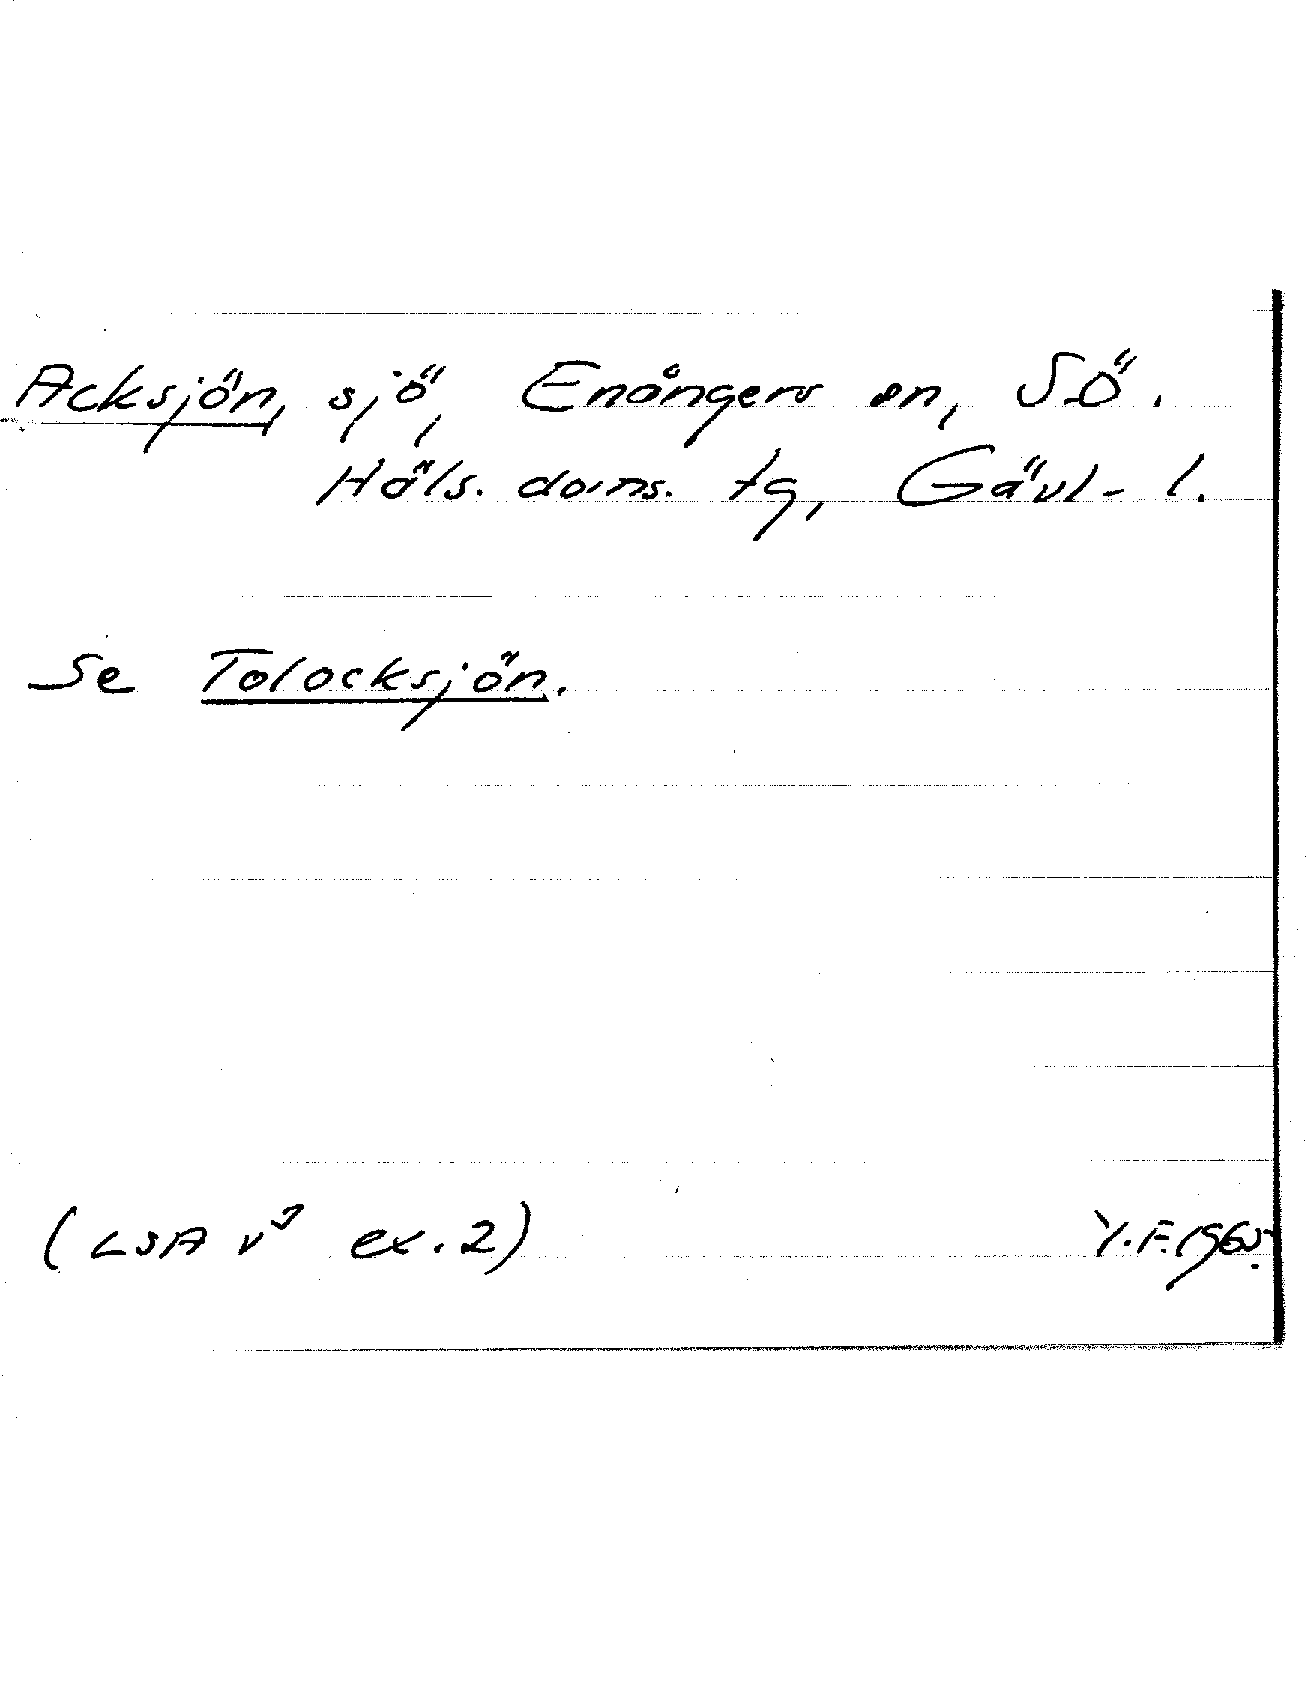 Acksjön, sjö, Enångers sn, SÖ.
Häls. doms. tg, Gävl- l.
Se Tolocksjön.
(LSA v³ ex. 2) Y.F. 1965.